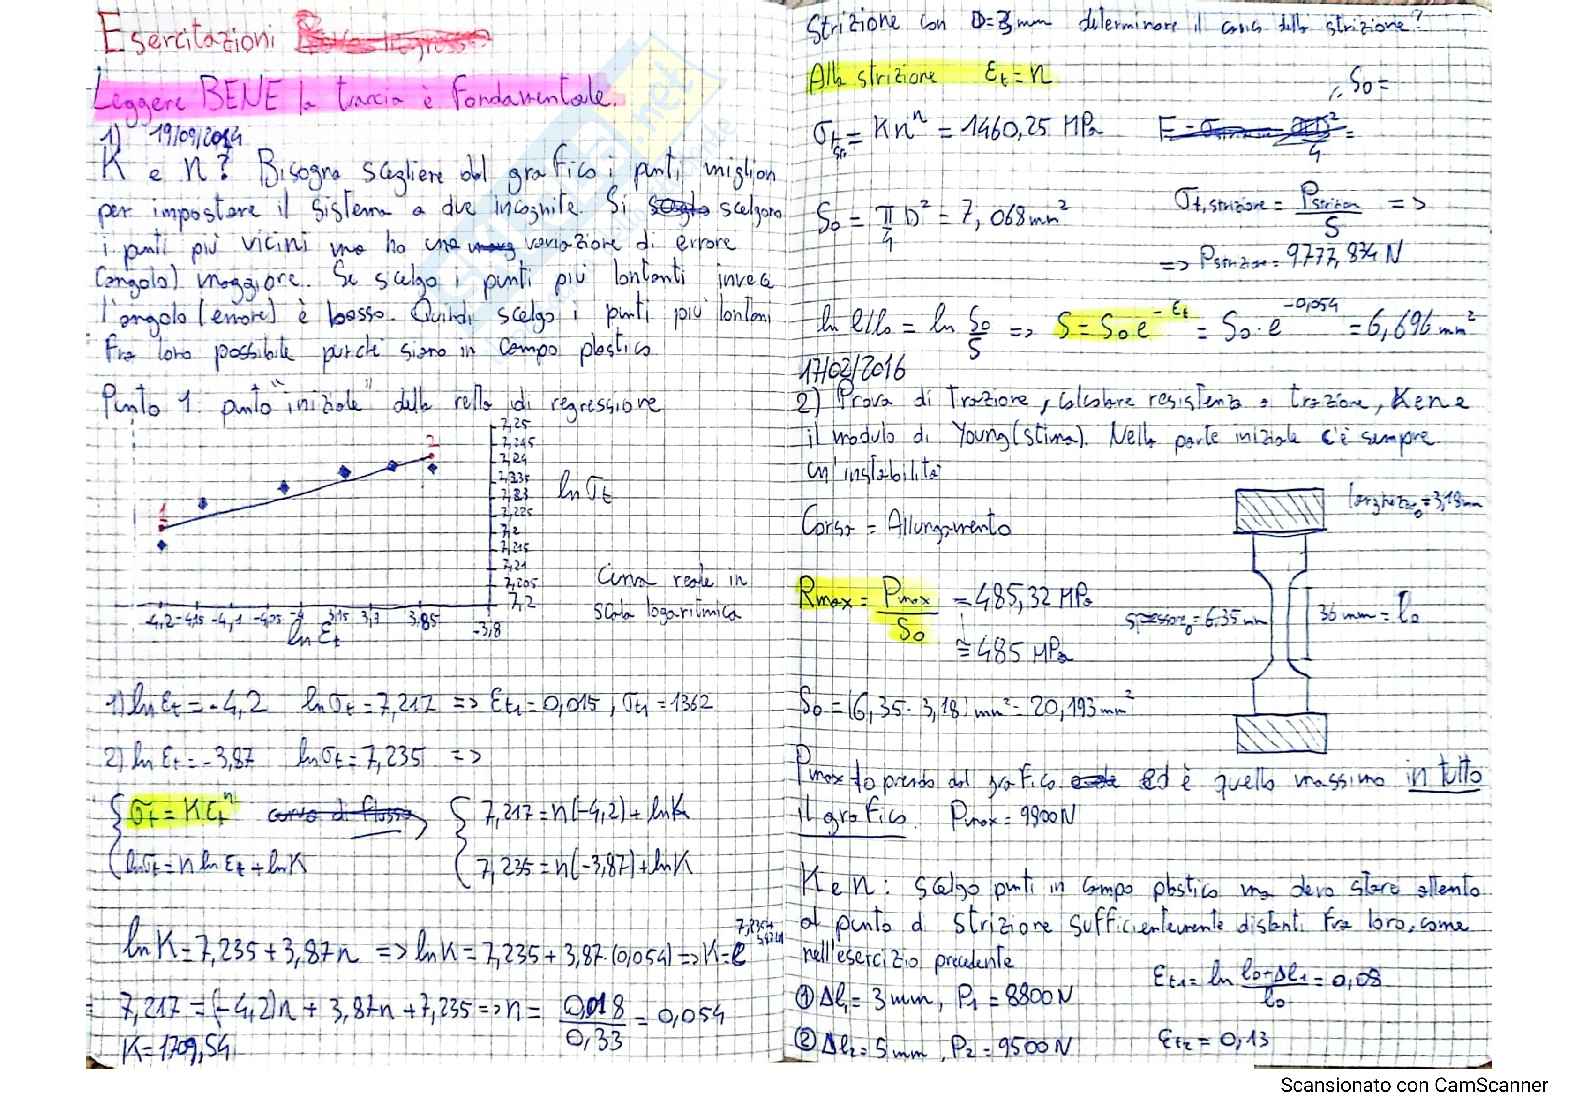 Esercitazioni
Leggere BENE la traccia è fondamentale.
1) 19/09/2014
K e n? Bisogna scegliere dal grafico i punti migliori
per impostare il sistema a due incognite. Si scelgono
i punti più vicini ma ho una variazione di errore
(angolo) maggiore. Se scelgo i punti più lontani invece
l'angolo (errore) è basso. Quindi scelgo i punti più lontani
fra loro possibile purchè siano in campo plastico
Punto 1: punto "iniziale" della retta di regressione
7,25
7,245
7,24
7,235
7,23
7,225
7,22
7,215
7,21
7,205
7,2
1
2
ln σt
Curva reale in
scala logaritmica
-4,2 -4,15 -4,1 -4,05 -4 3,15 3,7 3,85 -3,8
ln Et
1) ln Et = -4,2 ln σt = 7,217 => Et1 = 0,015 ; σt1 = 1362
2) ln Et = -3,87 ln σt = 7,235 =>
{ σt = K Et^n
{ ln σt = n ln Et + ln K
{ 7,217 = n(-4,2) + ln K
{ 7,235 = n(-3,87) + ln K
ln K = 7,235 + 3,87 n => ln K = 7,235 + 3,87·(0,054) => K = e
7,217 = (-4,2)n + 3,87n + 7,235 => n = 0,018/0,33 = 0,054
K = 1709,54
Strizione con D=3mm determinare il carico della strizione?
Alla strizione Et = n
S0 =
σt str = K n^n = 1460,25 MPa
S0 = π/4 D² = 7,068 mm²
σt, strizione = Pstrizion/S =>
=> Pstrizion = 9777,834 N
ln l/l0 = ln S0/S => S = S0 e^-Et = S0 · e^-0,054 = 6,696 mm²
17/02/2016
2) Prova di Trazione, calcolare resistenza a trazione, K e n e
il modulo di Young (stima). Nella parte iniziale c'è sempre
un'instabilità
larghezza0 = 3,18mm
Corsa = Allungamento
Rmax = Pmax/S0 = 485,32 MPa
≅ 485 MPa
spessore0 = 6,35 mm
36 mm = l0
S0 = (6,35 · 3,18) mm² = 20,193 mm²
Pmax lo prendo dal grafico ed è quello massimo in tutto
il grafico. Pmax = 9800N
K e n: scelgo punti in campo plastico ma devo stare attento
al punto di strizione sufficientemente distanti fra loro, come
nell'esercizio precedente
① Δl1 = 3 mm, P1 = 8800 N
Et1 = ln l0+Δl1/l0 = 0,08
② Δl2 = 5 mm, P2 = 9500 N
Et2 = 0,13
Scansionato con CamScanner